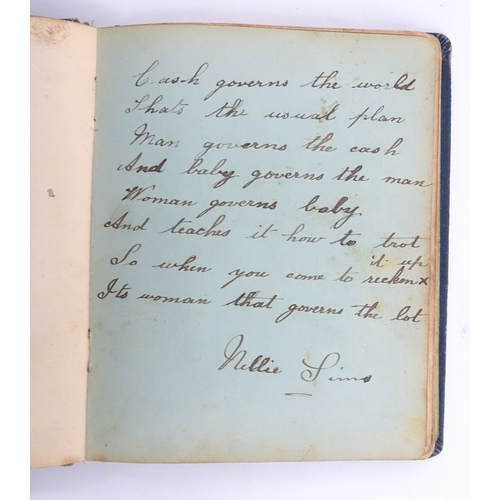 Cash governs the world
Thats the usual plan
Man governs the cash
And baby governs the man
Woman governs baby
And teaches it how to trot
it up
So when you come to reckon x
Its woman that governs the lot
Nellie Sims